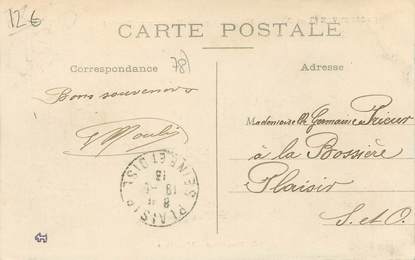 12€
CARTE POSTALE
Correspondance
78)
Adresse
Bons souvenirs
Mademoiselle Germaine Prieur
à la Bossière
Plaisir
S. et O.
PLAISIR
SEINE ET OISE